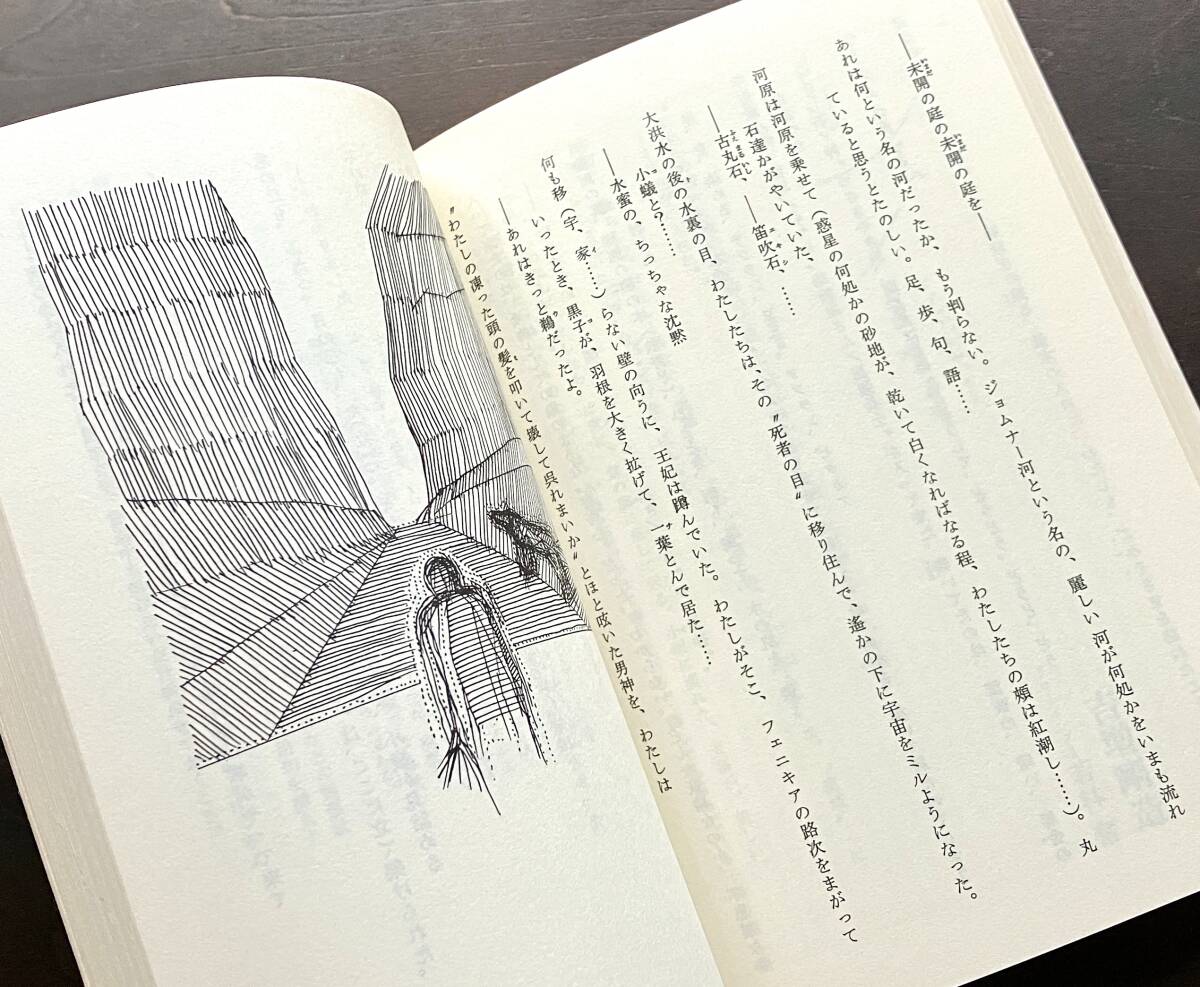 ――未開の庭の未開の庭を――
あれは何という名の河だったか、もう判らない。ジョムナー河という名の、麗しい河が何処かをいまも流れ
ていると思うとたのしい。足、歩、句、語……
河原は河原を乗せて（惑星の何処かの砂地が、乾いて白くなればなる程、わたしたちの頰は紅潮し……）。丸
石達かがやいていた、
――古丸石、――笛吹石、……
大洪水の後の水裏の目、わたしたちは、その〝死者の目〟に移り住んで、遙かの下に宇宙をミルようになった。
小蟻と？……
――水蜜の、ちっちゃな沈黙
何も移（宇、家……）らない壁の向うに、王妃は蹲んでいた。わたしがそこ、フェニキアの路次をまがって
いったとき、黒子が、羽根を大きく拡げて、一葉とんで居た……
――あれはきっと鵜だったよ。
〝わたしの凍った頭の髪を叩いて壊して呉れまいか〟とほと呟いた男神を、わたしは